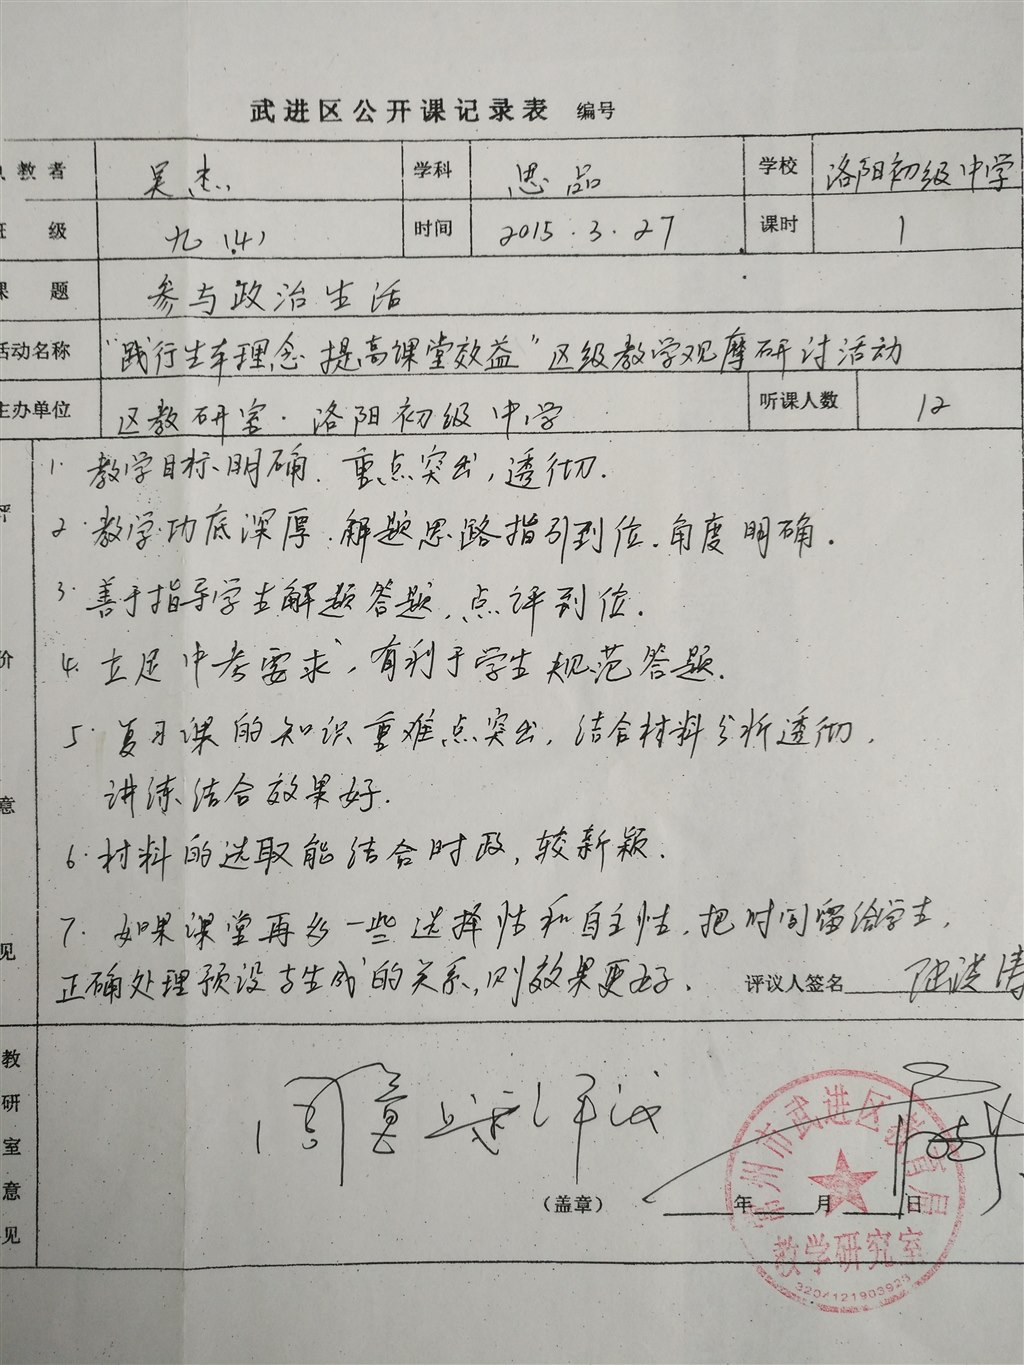 武进区公开课记录表 编号
教者 吴杰 学科 思品 学校 洛阳初级中学
级 九(4) 时间 2015.3.27 课时 1
题 参与政治生活
活动名称 "践行生本理念 提高课堂效益"区级教学观摩研讨活动
主办单位 区教研室.洛阳初级中学 听课人数 12
评价意见
1.教学目标明确.重点突出,透彻.
2.教学功底深厚.解题思路指引到位.角度明确.
3.善于指导学生解题答题,点评到位.
4.立足中考要求,有利于学生规范答题.
5.复习课的知识重难点突出,结合材料分析透彻,
讲练结合效果好.
6.材料的选取能结合时政,较新颖.
7.如果课堂再多一些选择性和自主性,把时间留给学生,
正确处理预设与生成的关系,则效果更好.
评议人签名
教研室意见
同意上述评议
(盖章) 年 月 日
常州市武进区教育局
教学研究室